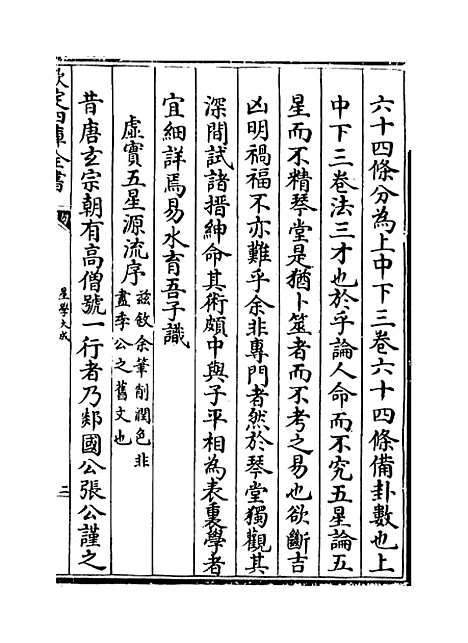 六十四條分為上中下三卷六十四條備卦數也上
中下三卷法三才也於乎論人命而不究五星論五
星而不精琴堂是猶卜筮者而不考之易也欲斷吉
凶明禍福不亦難乎余非專門者然於琴堂獨觀其
深間試諸搢紳命其術頗中與子平相為表裏學者
宜細詳焉易水育吾子識
虛實五星源流序
兹敘余筆削潤色非
盡李公之舊文也
昔唐玄宗朝有高僧號一行者乃郯國公張公謹之
欽定四庫全書
星學大成
三